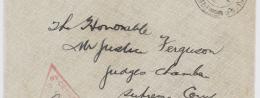 The Honorable
Mr Justice Ferguson
Judges Chambe
Supreme Cour